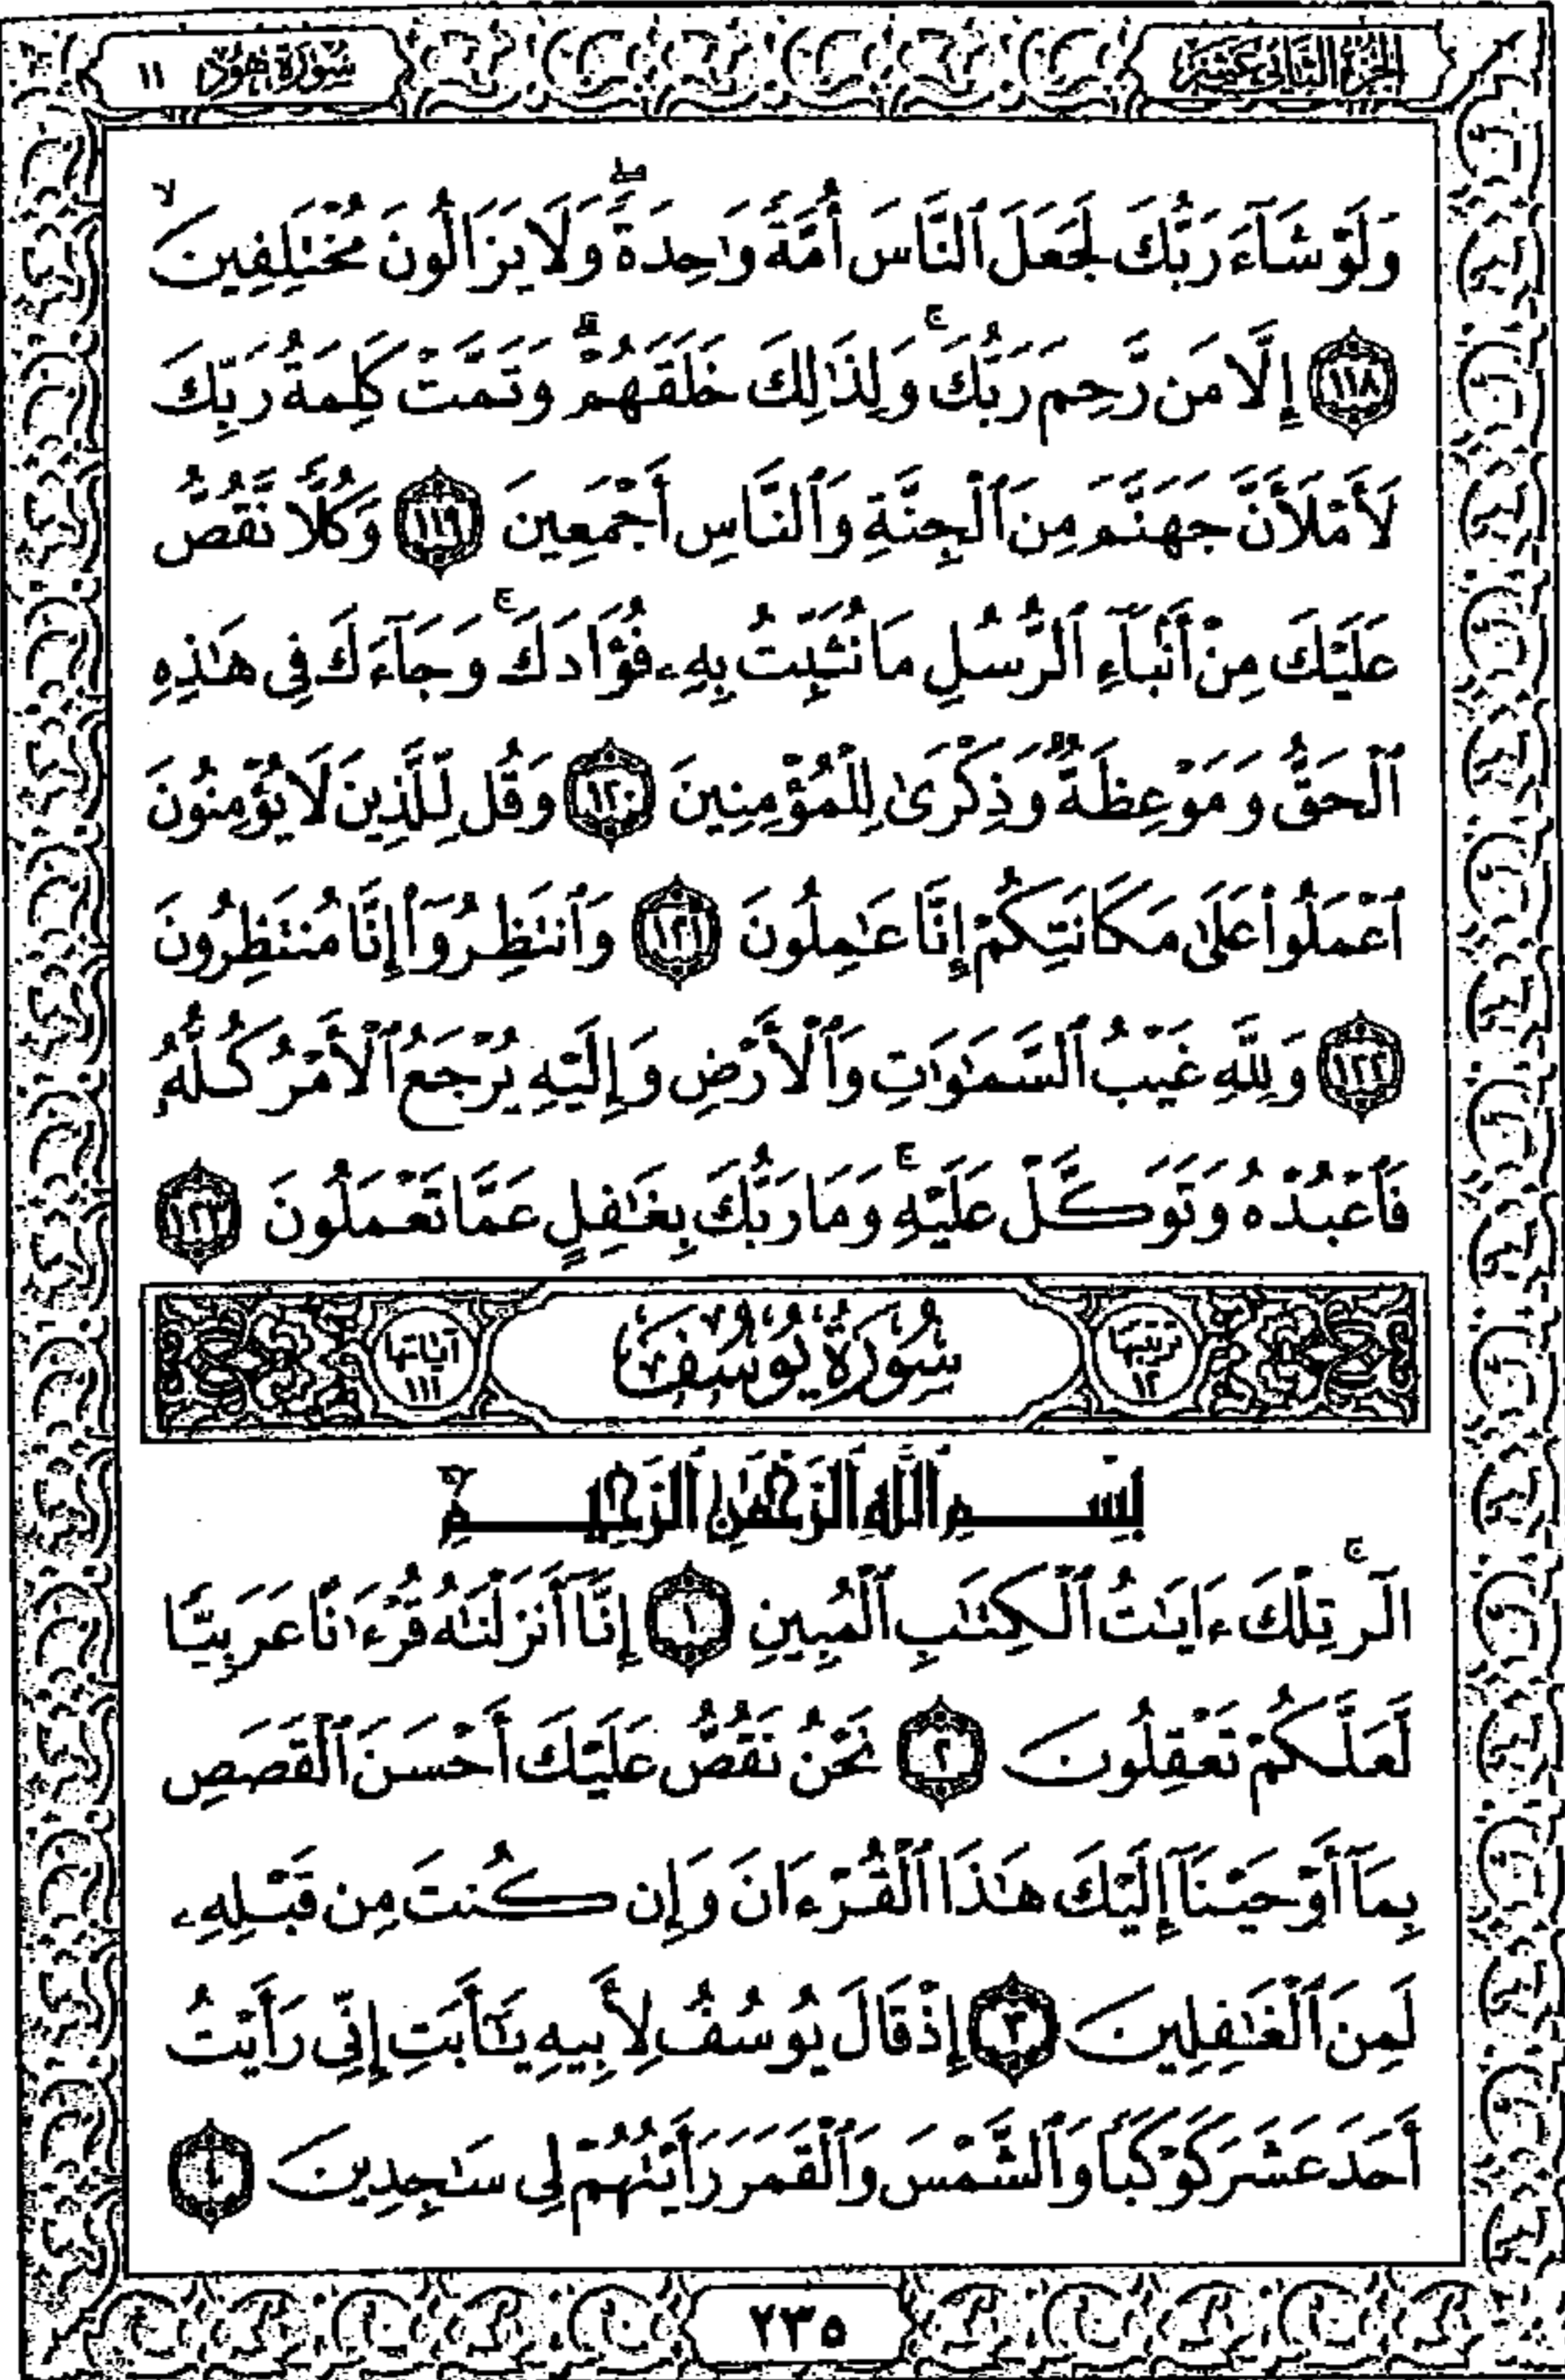 الجزء الثاني عشر
سورة هود ١١
وَلَوْ شَآءَ رَبُّكَ لَجَعَلَ ٱلنَّاسَ أُمَّةً وَٰحِدَةً ۖ وَلَا يَزَالُونَ مُخْتَلِفِينَ ۙ
﴿١١٨﴾ إِلَّا مَن رَّحِمَ رَبُّكَ ۚ وَلِذَٰلِكَ خَلَقَهُمْ ۗ وَتَمَّتْ كَلِمَةُ رَبِّكَ
لَأَمْلَأَنَّ جَهَنَّمَ مِنَ ٱلْجِنَّةِ وَٱلنَّاسِ أَجْمَعِينَ ﴿١١٩﴾ وَكُلًّا نَّقُصُّ
عَلَيْكَ مِنْ أَنۢبَآءِ ٱلرُّسُلِ مَا نُثَبِّتُ بِهِۦ فُؤَادَكَ ۚ وَجَآءَكَ فِى هَٰذِهِ
ٱلْحَقُّ وَمَوْعِظَةٌ وَذِكْرَىٰ لِلْمُؤْمِنِينَ ﴿١٢٠﴾ وَقُل لِّلَّذِينَ لَا يُؤْمِنُونَ
ٱعْمَلُوا۟ عَلَىٰ مَكَانَتِكُمْ إِنَّا عَٰمِلُونَ ﴿١٢١﴾ وَٱنتَظِرُوٓا۟ إِنَّا مُنتَظِرُونَ
﴿١٢٢﴾ وَلِلَّهِ غَيْبُ ٱلسَّمَٰوَٰتِ وَٱلْأَرْضِ وَإِلَيْهِ يُرْجَعُ ٱلْأَمْرُ كُلُّهُۥ
فَٱعْبُدْهُ وَتَوَكَّلْ عَلَيْهِ ۚ وَمَا رَبُّكَ بِغَٰفِلٍ عَمَّا تَعْمَلُونَ ﴿١٢٣﴾
ترتيبها ١٢
سُورَةُ يُوسُفَ
آياتها ١١١
بِسْمِ ٱللَّهِ ٱلرَّحْمَٰنِ ٱلرَّحِيمِ
الٓر ۚ تِلْكَ ءَايَٰتُ ٱلْكِتَٰبِ ٱلْمُبِينِ ﴿١﴾ إِنَّآ أَنزَلْنَٰهُ قُرْءَٰنًا عَرَبِيًّا
لَّعَلَّكُمْ تَعْقِلُونَ ﴿٢﴾ نَحْنُ نَقُصُّ عَلَيْكَ أَحْسَنَ ٱلْقَصَصِ
بِمَآ أَوْحَيْنَآ إِلَيْكَ هَٰذَا ٱلْقُرْءَانَ وَإِن كُنتَ مِن قَبْلِهِۦ
لَمِنَ ٱلْغَٰفِلِينَ ﴿٣﴾ إِذْ قَالَ يُوسُفُ لِأَبِيهِ يَٰٓأَبَتِ إِنِّى رَأَيْتُ
أَحَدَ عَشَرَ كَوْكَبًا وَٱلشَّمْسَ وَٱلْقَمَرَ رَأَيْتُهُمْ لِى سَٰجِدِينَ ﴿٤﴾
٢٣٥